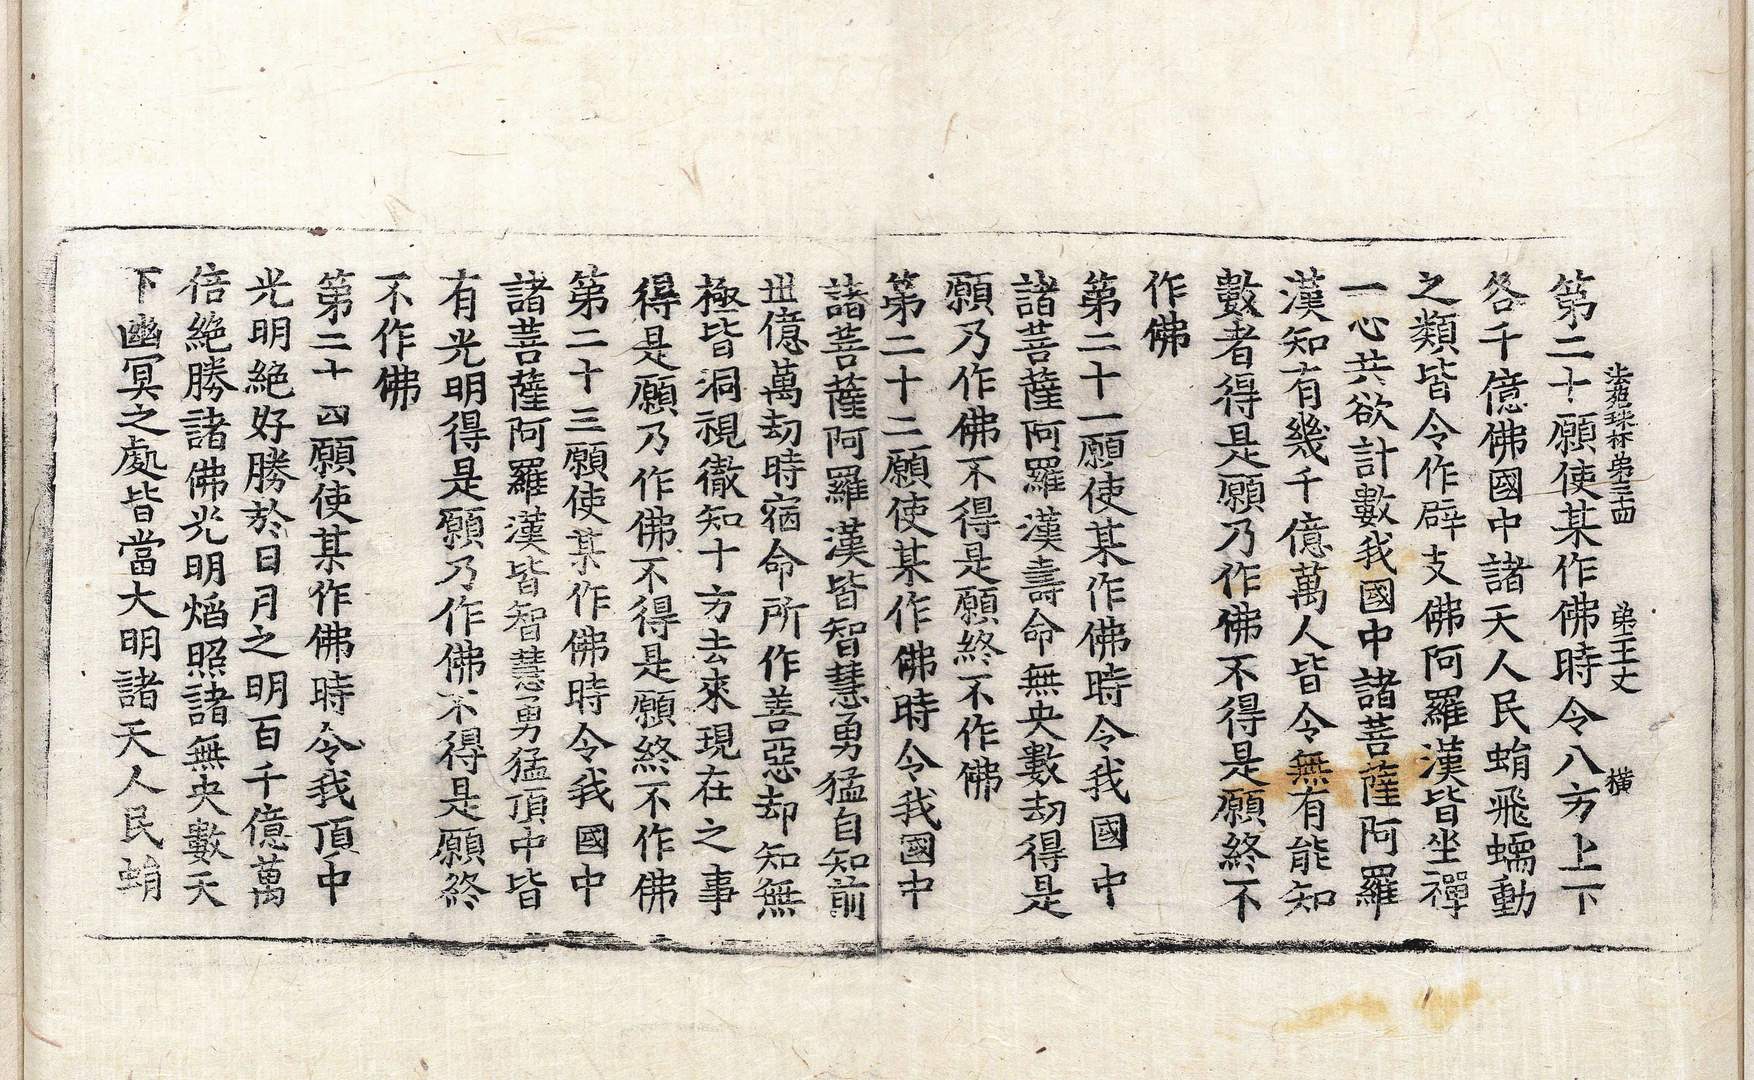 法苑珠林第三 第三十丈 橫
第二十願使某作佛時令八方上下
各千億佛國中諸天人民蜎飛蠕動
之類皆令作辟支佛阿羅漢皆坐禪
一心共欲計數我國中諸菩薩阿羅
漢知有幾千億萬人皆令無有能知
數者得是願乃作佛不得是願終不
作佛
第二十一願使某作佛時令我國中
諸菩薩阿羅漢壽命無央數劫得是
願乃作佛不得是願終不作佛
第二十二願使某作佛時令我國中
諸菩薩阿羅漢皆智慧勇猛自知前
丗億萬劫時宿命所作善惡却知無
極皆洞視徹知十方去來現在之事
得是願乃作佛不得是願終不作佛
第二十三願使某作佛時令我國中
諸菩薩阿羅漢皆智慧勇猛頂中皆
有光明得是願乃作佛不得是願終
不作佛
第二十四願使某作佛時令我頂中
光明絶好勝於日月之明百千億萬
倍絶勝諸佛光明焰照諸無央數天
下幽冥之處皆當大明諸天人民蜎